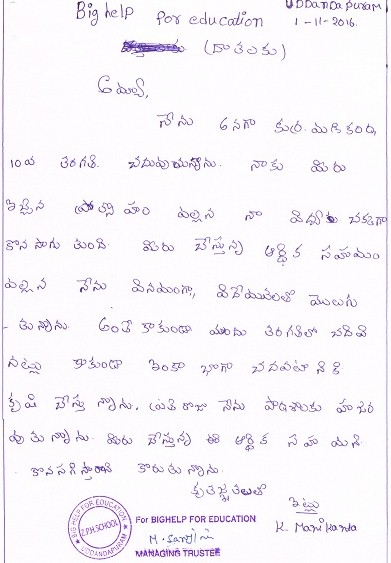 Big help For education
UDDANDAPURAM
1-11-2016.
(దాతలకు)
అమ్మా,
నేను అనగా కుర్ర. మణికంఠ,
10వ తరగతి. చదువుచున్నాను. నాకు మీరు
ఇచ్చిన ప్రోత్సాహం వల్లన నా విద్య చక్కగా
కొన సాగు తుంది. మీరు చేస్తున్న ఆర్థిక సహయం
వల్లన నేను వినయంగా, విదేయతలతో మెలుగు
-తున్నాను. అంతే కాకుండా ముందు తరగతిలో చదివి
నట్లు కాకుండా ఇంకా బాగా చదవటానికి
కృషి చేస్తు న్నాను. ప్రతి రోజు నేను పాఠశాలకు హాజర
వు తు న్నాను. మీరు చేస్తున్న ఈ ఆర్థిక సహ యని
కొనసాగిస్తారని కోరుతు న్నాను.
కృతజ్ఞతలతో
ఇట్లు
K. Manikanta
BIG HELP FOR EDUCATION
Z.P.H.SCHOOL
UDDANDAPURAM
For BIGHELP FOR EDUCATION
MANAGING TRUSTEE